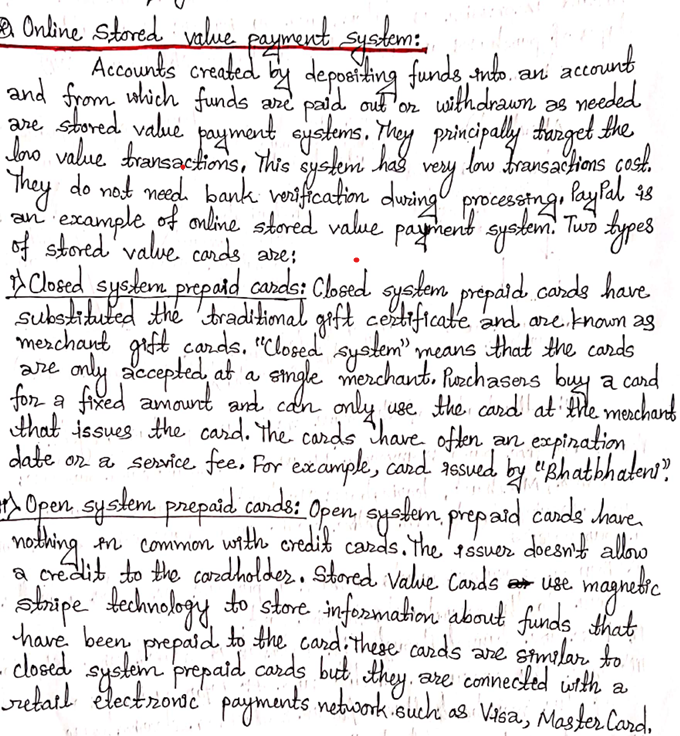 Online Stored value payment system:
Accounts created by depositing funds into an account
and from which funds are paid out or withdrawn as needed
are stored value payment systems. They principally target the
low value transactions. This system has very low transactions cost.
They do not need bank verification during processing. PayPal is
an example of online stored value payment system. Two types
of stored value cards are:
i) Closed system prepaid cards: Closed system prepaid cards have
substituted the traditional gift certificate and are known as
merchant gift cards. "Closed system" means that the cards
are only accepted at a single merchant. Purchasers buy a card
for a fixed amount and can only use the card at the merchant
that issues the card. The cards have often an expiration
date or a service fee. For example, card issued by "Bhatbhateni".
ii) Open system prepaid cards: Open system prepaid cards have
nothing in common with credit cards. The issuer doesn't allow
a credit to the cardholder. Stored Value Cards use magnetic
stripe technology to store information about funds that
have been prepaid to the card. These cards are similar to
closed system prepaid cards but they are connected with a
retail electronic payments network such as Visa, MasterCard.